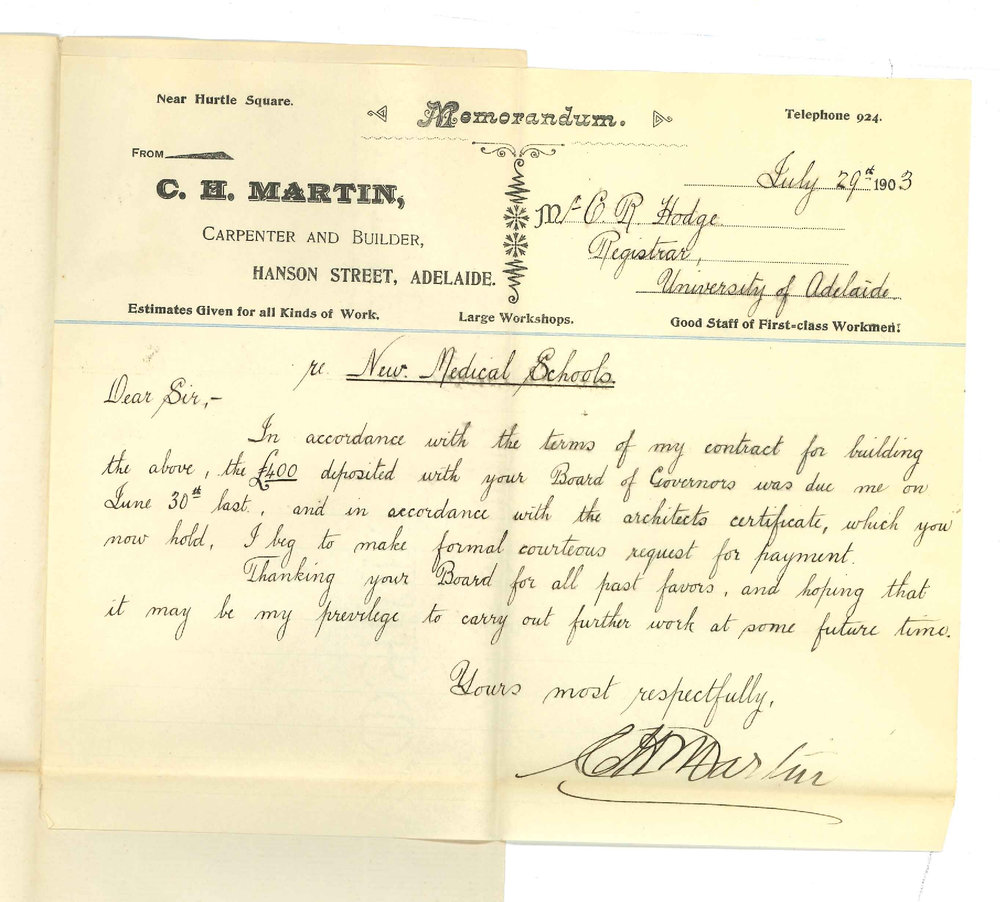 Near Hurtle Square.
Memorandum.
Telephone 924.
FROM
C. H. MARTIN,
CARPENTER AND BUILDER,
HANSON STREET, ADELAIDE.
July 29th 1903
Mr C R Hodge
Registrar,
University of Adelaide
Estimates Given for all Kinds of Work.
Large Workshops.
Good Staff of First-class Workmen:
re New Medical Schools.
Dear Sir,-
In accordance with the terms of my contract for building
the above, the £400 deposited with your Board of Governors was due me on
June 30th last, and in accordance with the architects certificate, which you
now hold, I beg to make formal courteous request for payment.
Thanking your Board for all past favors, and hoping that
it may be my previlege to carry out further work at some future time.
Yours most respectfully,
C H Martin